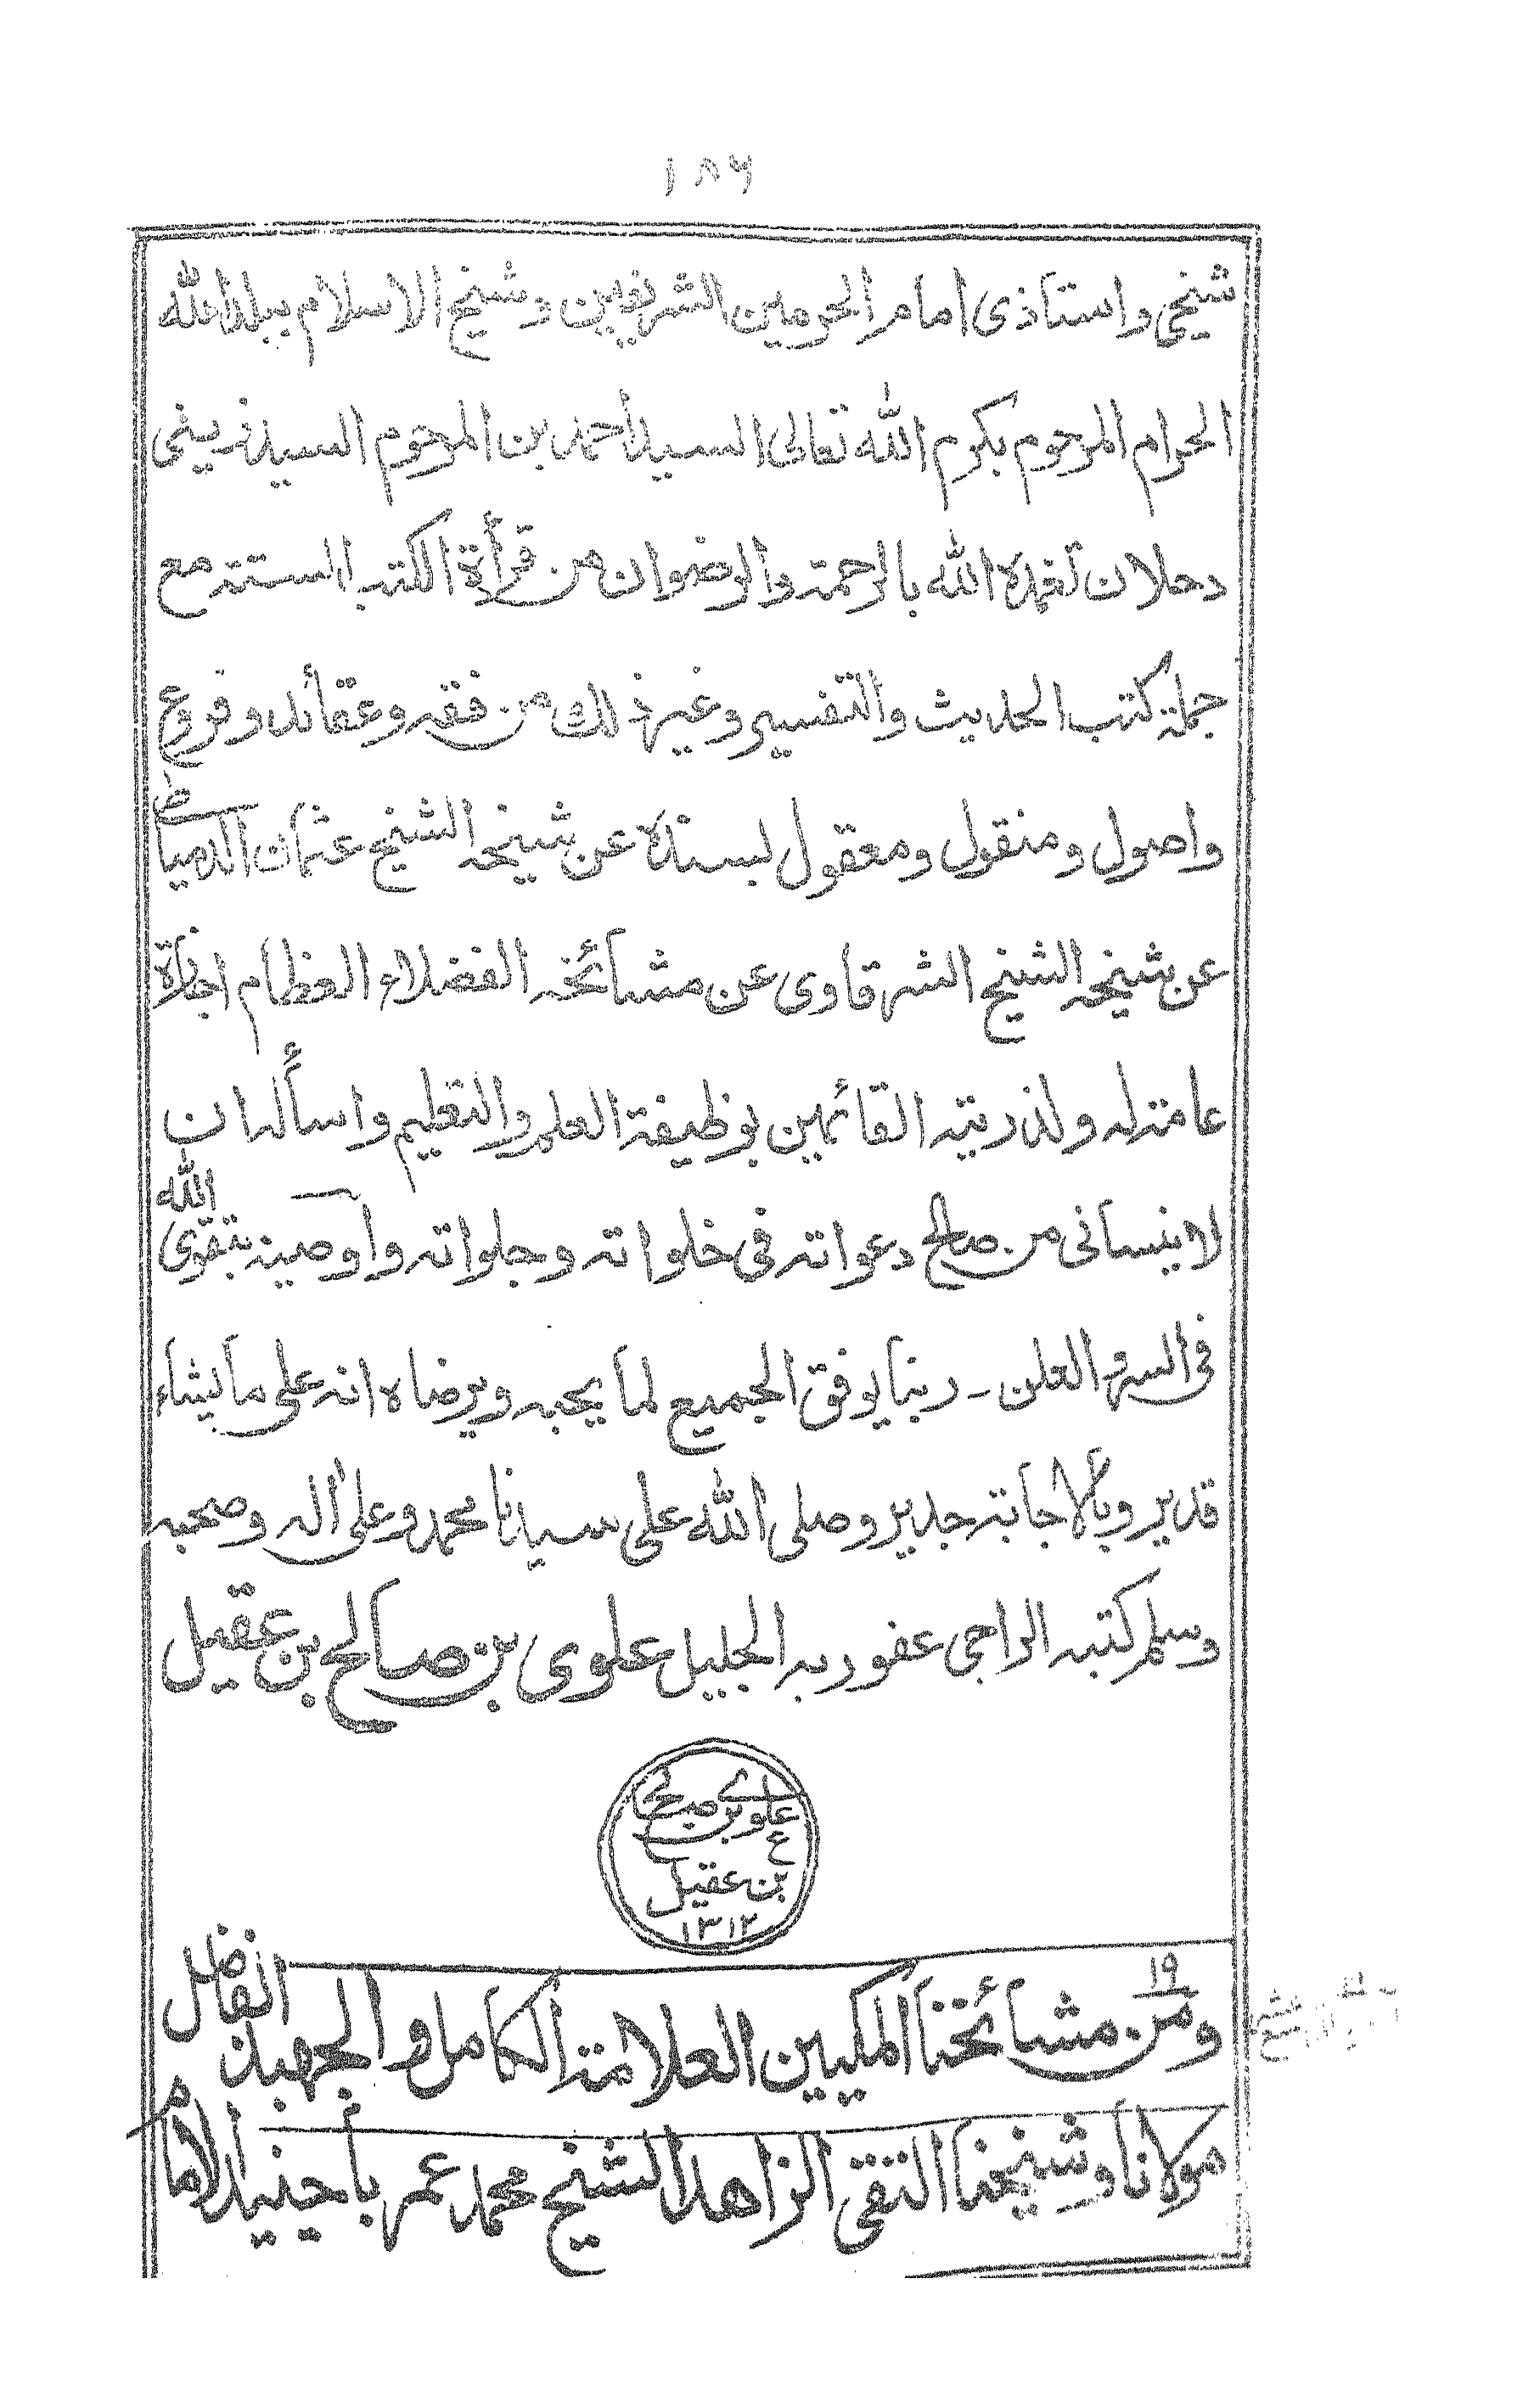 ١٨٦
شيخي واستاذى امام الحرمين الشريفين وشيخ الاسلام ببلد الله
الحرام المرحوم بكرم الله تعالى السيد أحمد بن المرحوم السيد زينى
دحلان تغمده الله بالرحمة والرضوان من قرأة الكتب الستة مع
جملة كتب الحديث والتفسير وغير ذلك من فقه وعقائد وفروع
واصول ومنقول ومعقول بسنده عن شيخه الشيخ عثمان الدمياطى
عن شيخه الشيخ الشرقاوى عن مشائخه الفضلاء العظام اجازة
عامة له ولذريته القائمين بوظيفة العلم والتعليم واسأله ان
لا ينسانى من صالح دعواته فى خلواته وجلواته واوصيه بتقوى الله
فى السر والعلن - ربنا يوفق الجميع لما يحبه ويرضاه انه على ما يشاء
قدير وبالاجابة جدير وصلى الله على سيدنا محمد وعلى اله وصحبه
وسلم كتبه الراجى عفو ربه الجليل علوى بن صالح بن عقيل
علوي بن صالح
بن عقيل
١٣١٢
١٩
ومن مشائخنا المكيين العلامة الكامل والجهبذ الفاضل
مولانا وشيخنا التقى الزاهد الشيخ محمد عمر باجنيد الامام